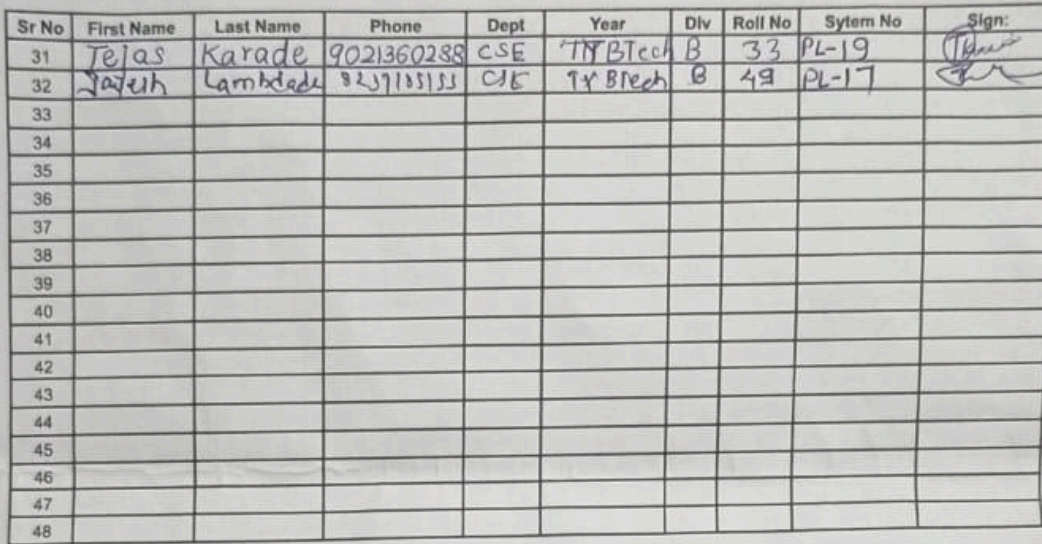 Sr No First Name Last Name Phone Dept Year Div Roll No Sytem No Sign:
31 Tejas Karade 9021360288 CSE TY BTech B 33 PL-19
32 CSE TY BTech B 49 PL-17
33
34
35
36
37
38
39
40
41
42
43
44
45
46
47
48